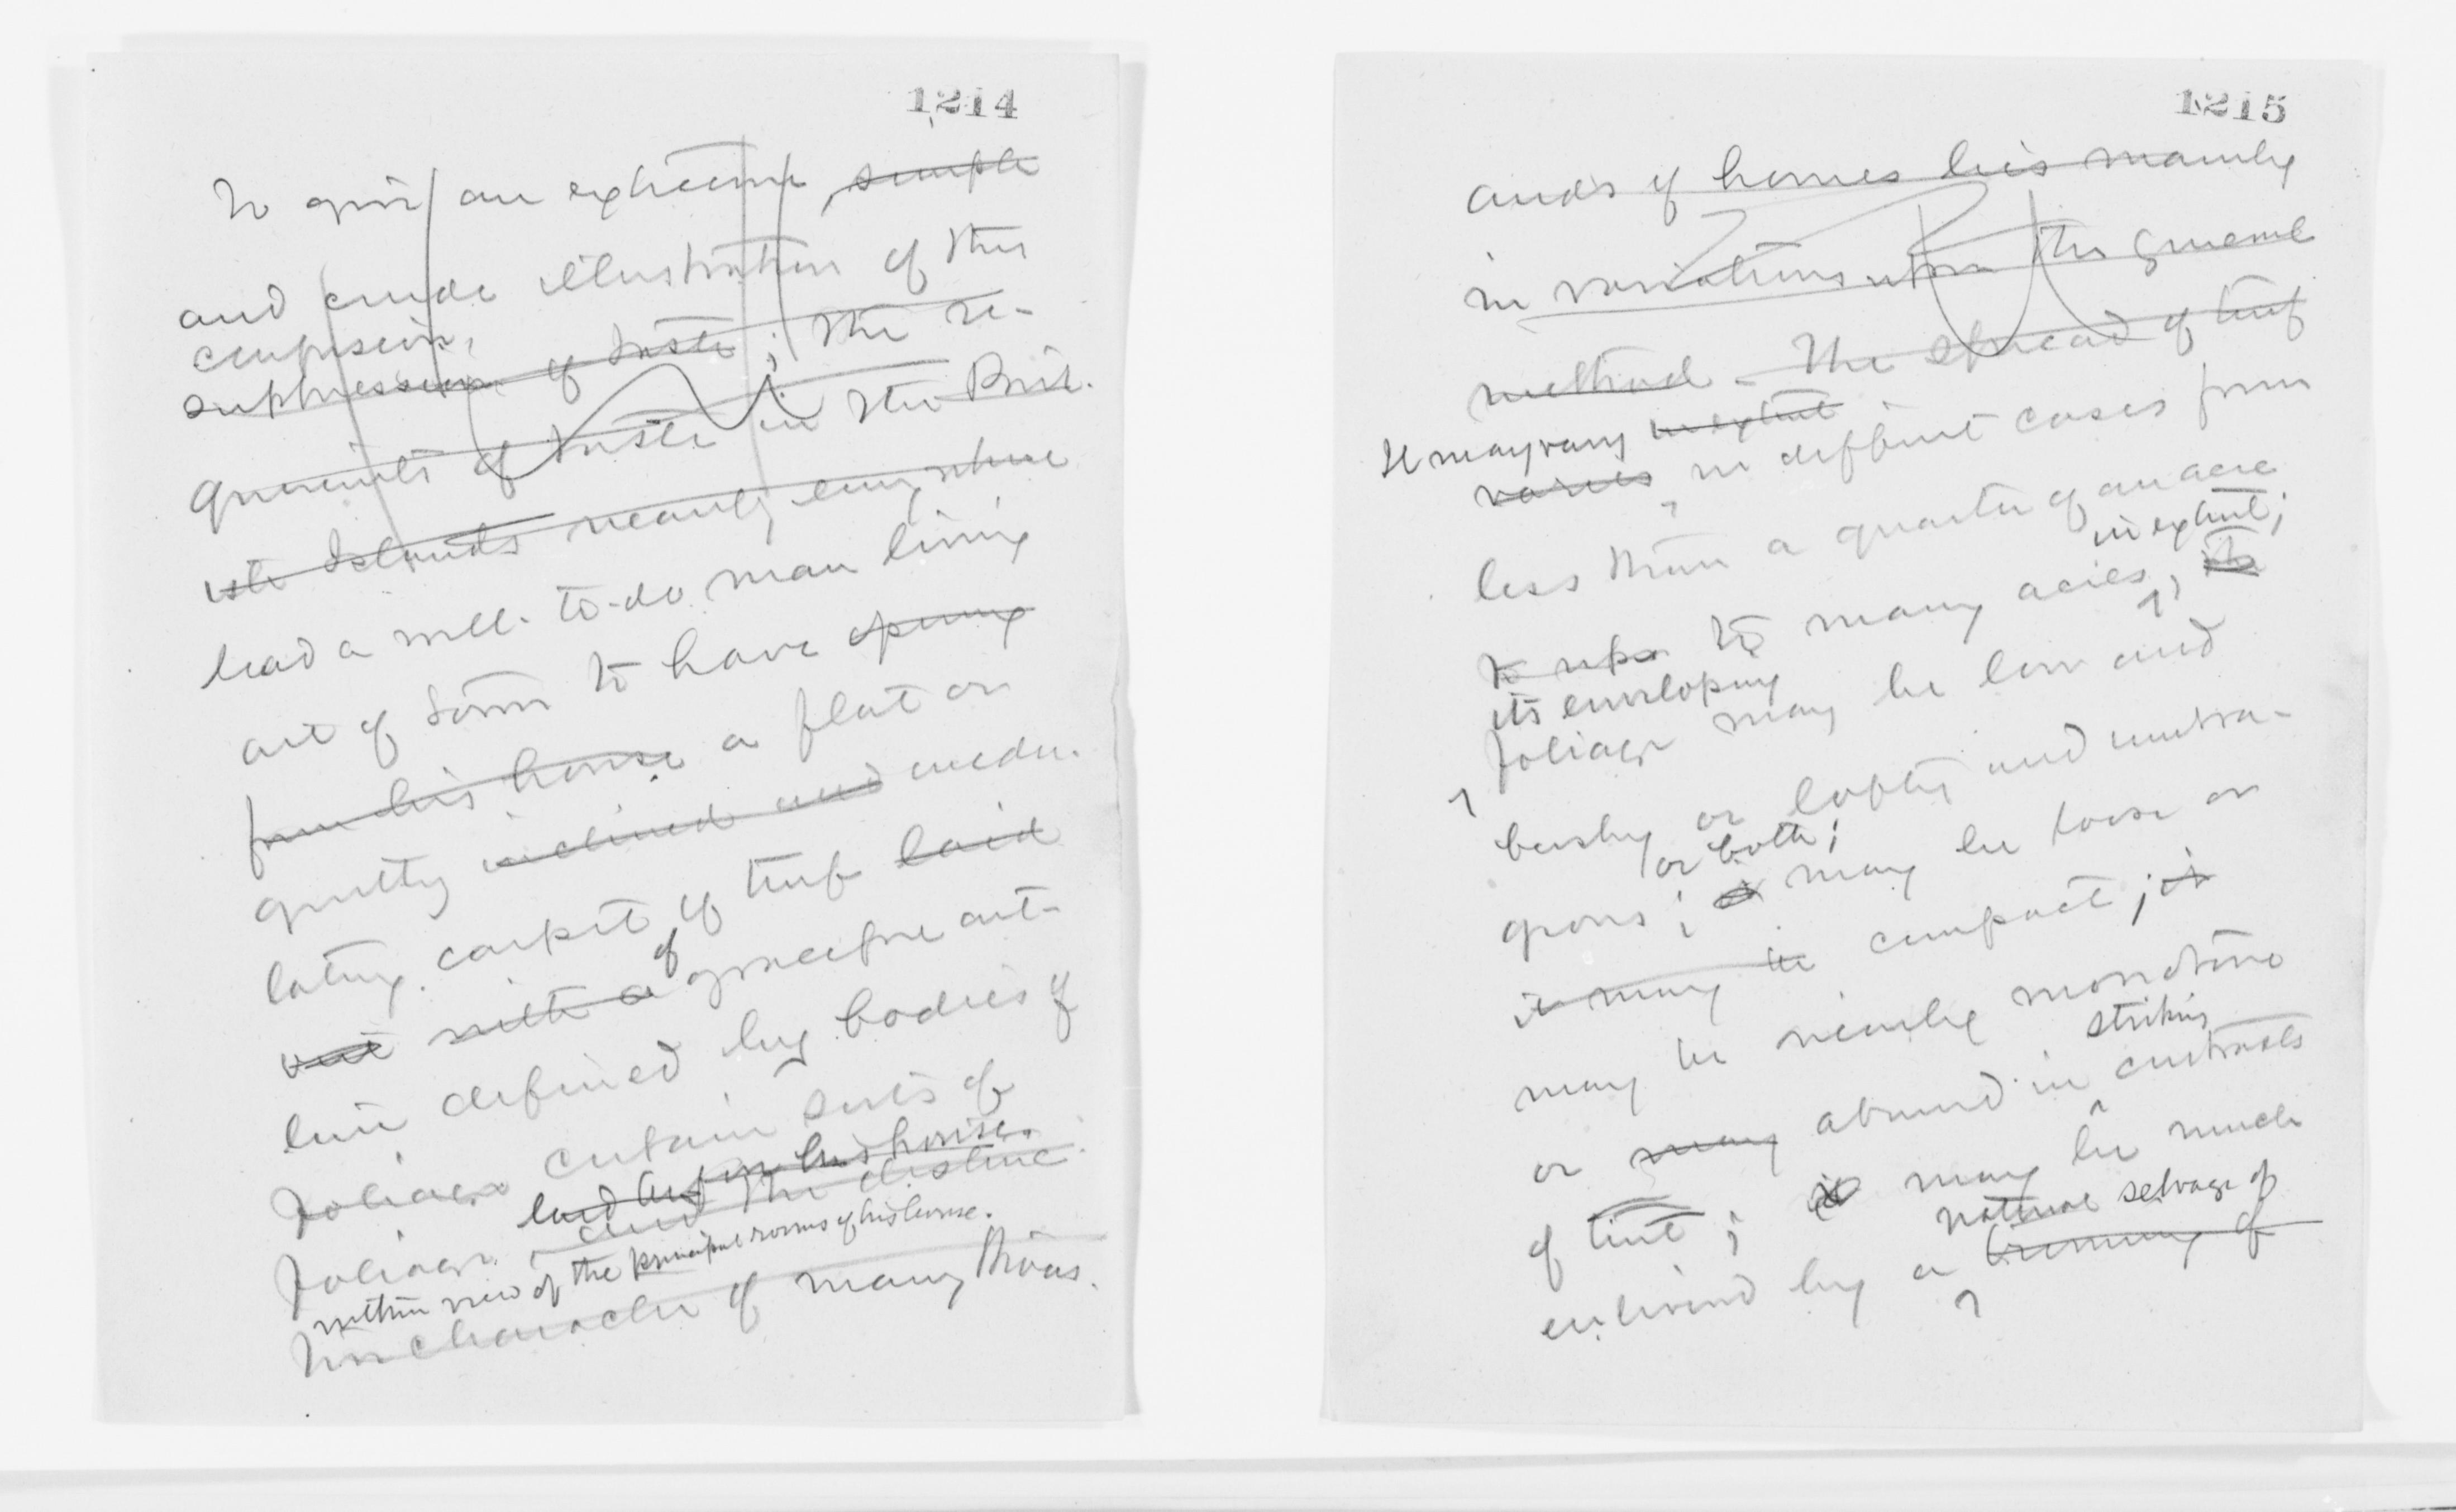 1214
To give an extreme, simple
and crude illustration of this
confusion,
suppression of taste; the re-
quirements of taste in the Brit-
ish Islands nearly everywhere
lead a well-to-do man living
out of town to have opening
from his house a flat or
gently inclined and undu-
lating carpet of turf laid
out with a of graceful out-
line defined by bodies of
foliage certain sorts of
laid before his house.
foliage, and the distinc-
within view of the principal rooms of his house.
tive character of many thous-
1215
ands of homes lies mainly
in variations upon this general
method. The spread of turf
It may vary in extent
varies, in different cases from
less than a quarter of an acre
in extent;
to upo to many acres, its
its enveloping
foliage may be low and
bushy or lofty and umbra-
or both;
geous; may be loose or
it may be compact; it
may be nearly monotone
striking
or may abound in contrasts
of tint; it may be much
natural selvage of
enlivened by a trimming of